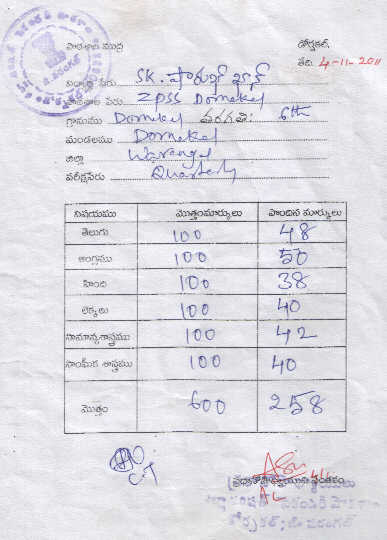 పాఠశాల ముద్ర
డోర్నకల్,
తేది: 4-11-2011
విద్యార్థి పేరు SK. షారుఖ్ ఖాన్
పాఠశాల పేరు ZPSS Dornakal
గ్రామము Dornakal తరగతి: 6th
మండలము Dornakal
జిల్లా Warangal
పరీక్షపేరు Quarterly
విషయము మొత్తంమార్కులు పొందిన మార్కులు
తెలుగు 100 48
ఆంగ్లము 100 50
హింది 100 38
లెక్కలు 100 40
సామాన్యశాస్త్రము 100 42
సాంఘీక శాస్త్రము 100 40
మొత్తం 600 258